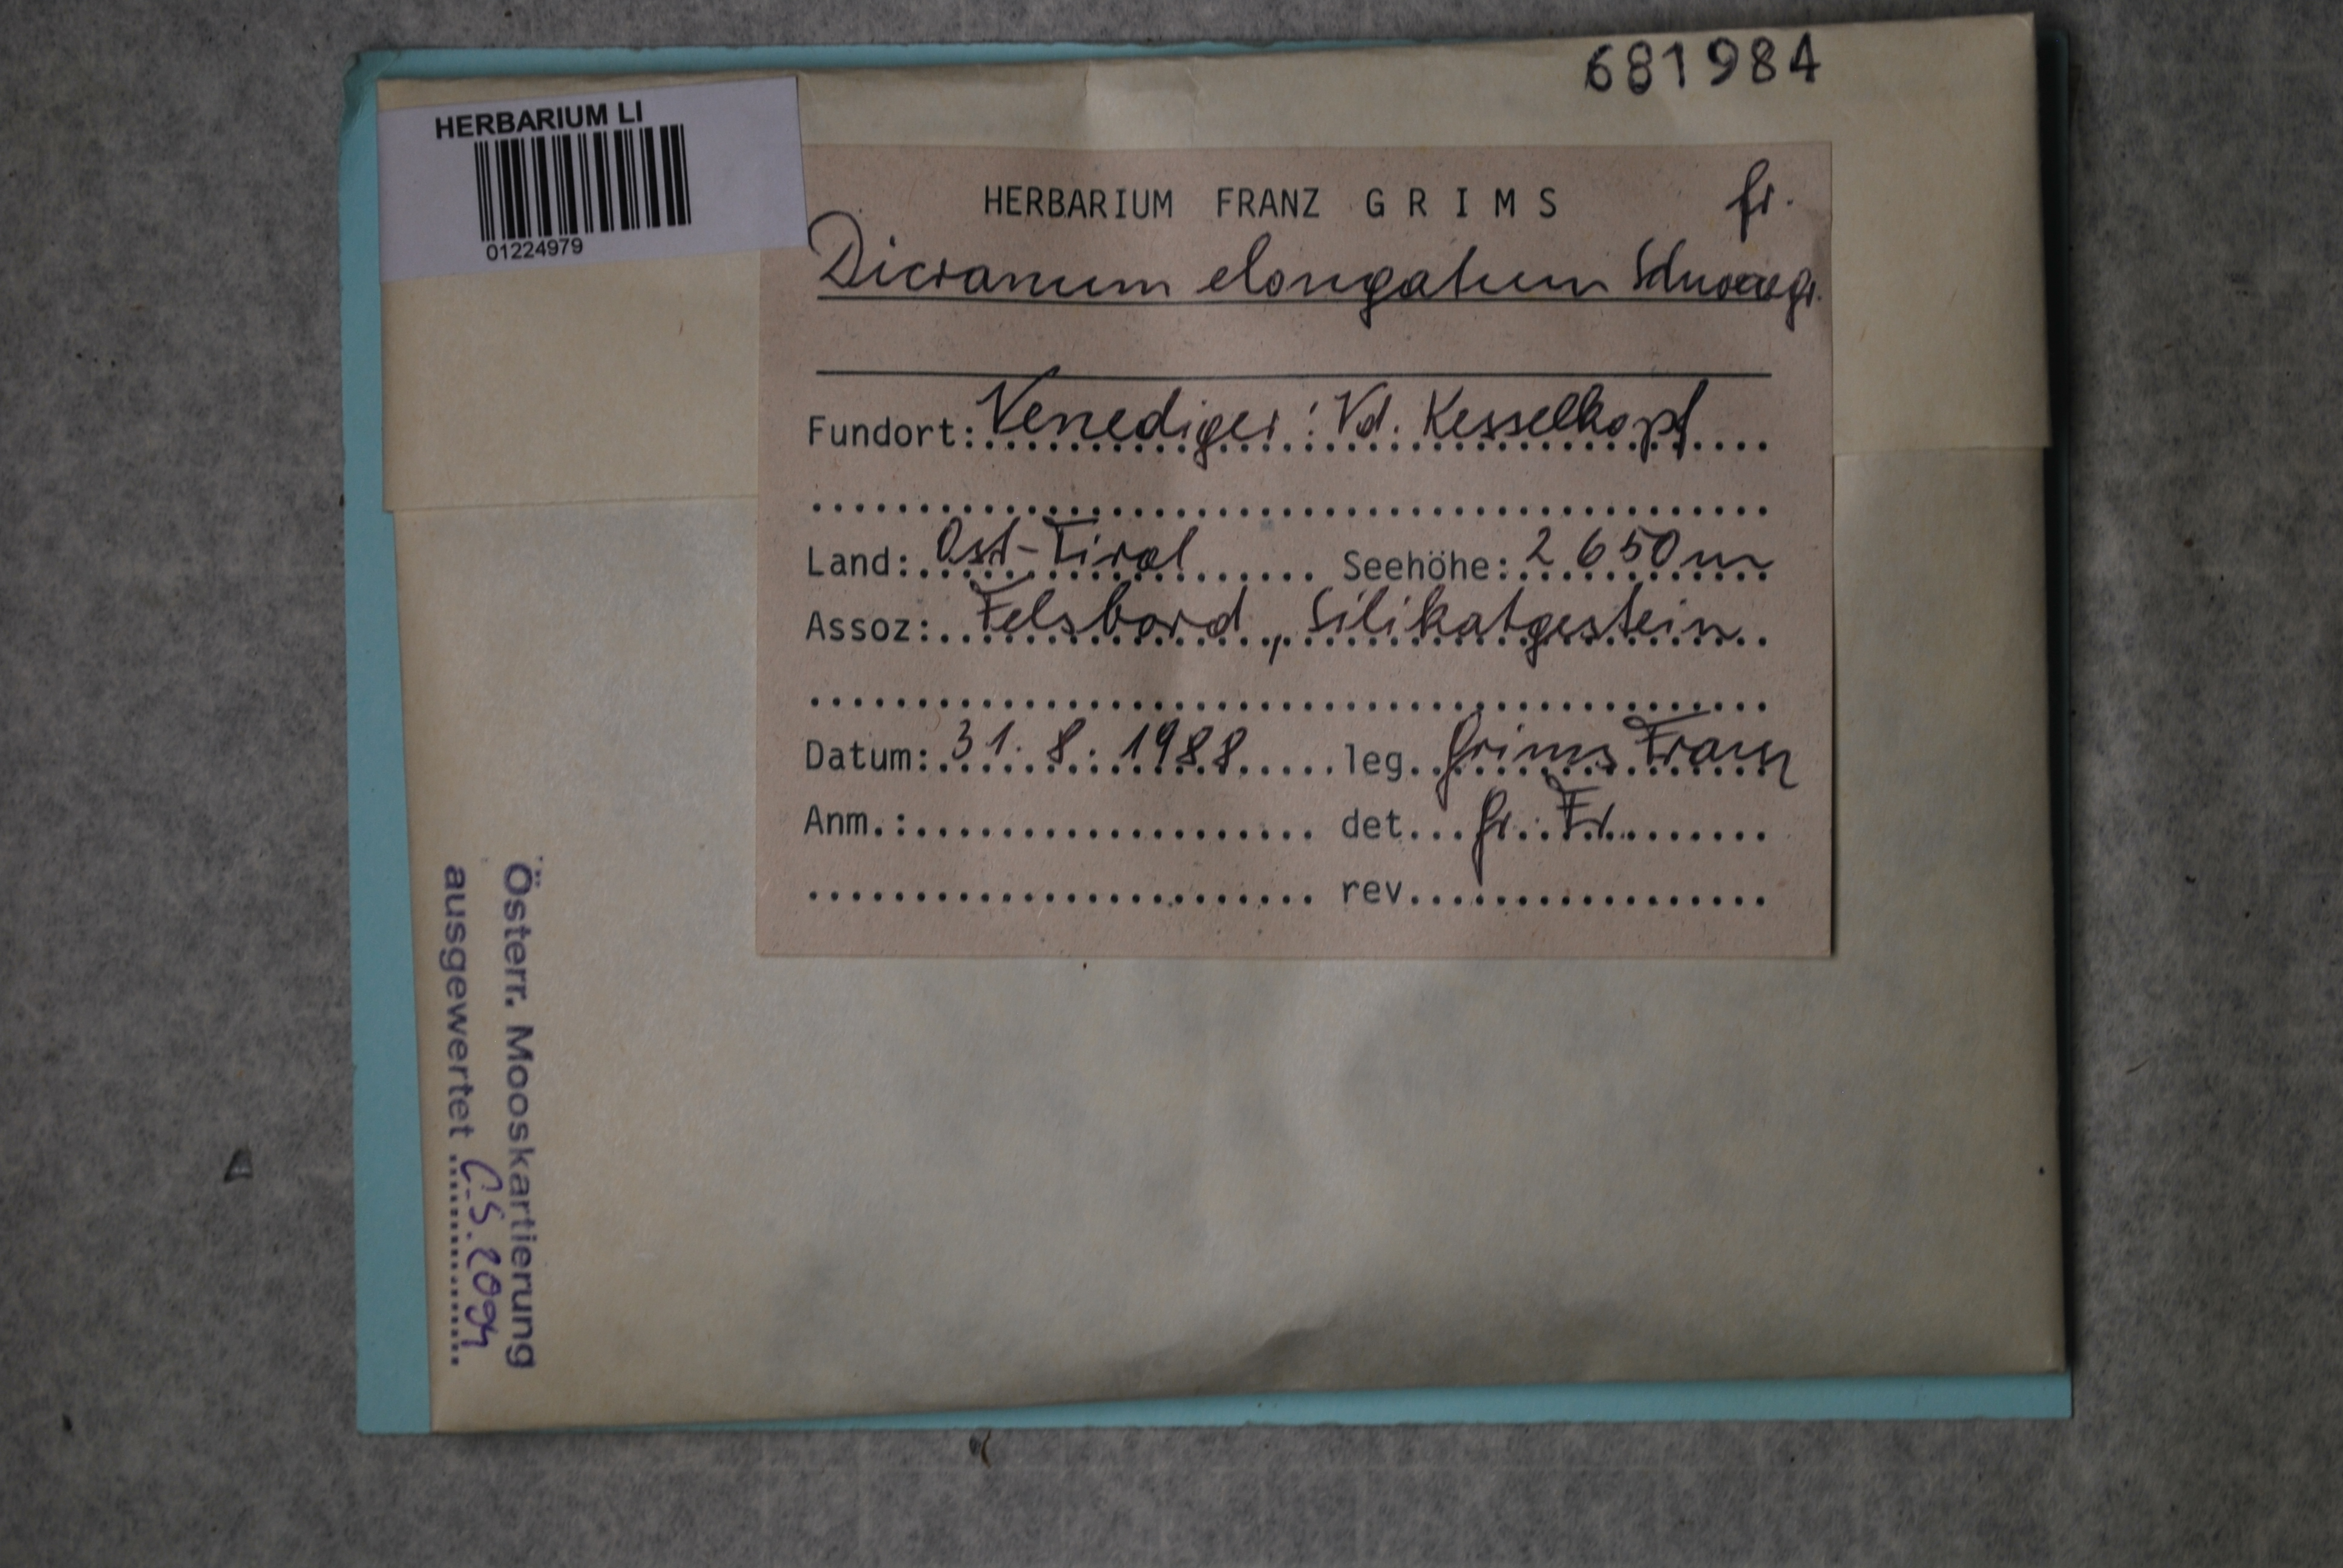 681984
HERBARIUM LI
01224979
HERBARIUM FRANZ GRIMS fr.
Dicranum elongatum Schwaegr.
Fundort: Venediger: Vd. Kesselkopf
Land: Ost-Tirol Seehöhe: 2650m
Assoz: Felsbord, Silikatgestein
Datum: 31. 8. 1988 leg. Grims Franz
Anm.: det. Gr. Fr.
rev.
Österr. Mooskartierung
ausgewertet C.S. 2004